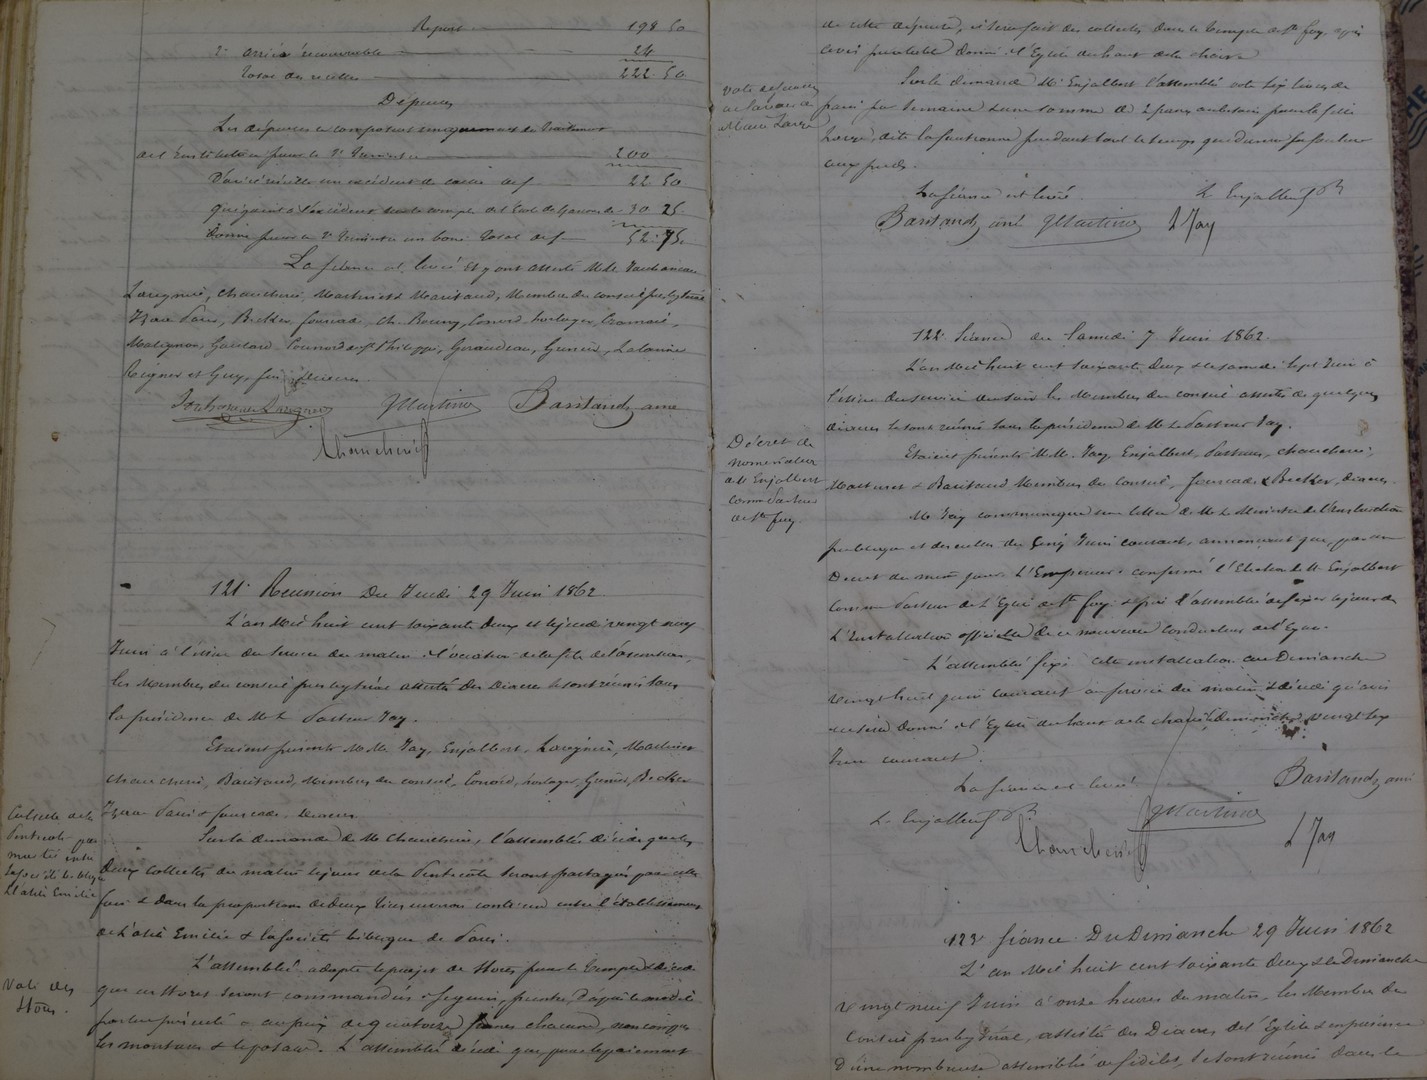 Report 198 50
2° arriéré recouvrable 24
Total des recettes 222. 50
Dépenses
Les dépenses se composent uniquement du Traitement
de l'Institutrice pour le 2e Trimestre 200
D'où il résulte un excédent de caisse de f 22 50
qui joint à l'excédent sur le compte de l'Ecole de Garçons de 30 25
donne pour ce 2e Trimestre un boni Total de f 52. 75
La séance est levée et y ont assisté M.M.
Lavignerie, Chaucherie, Martineau & Baritaud, Membres du conseil presbytéral
Paris, Becker, fourcade, Ch. Conord horloger,
Matignon, Conord Philippe, Giraudeau, Grenier,
Reignier et Guy, diacres.
JMartineau Baritaud ainé
Chaucherie
121e Réunion Du Jeudi 29 Juin 1862
L'an Mil huit cent soixante deux et le jeudi vingt neuf
Juin à l'issue du service du matin à l'occasion de la fête de l'Ascension,
les Membres du conseil presbytéral assistés des Diacres se sont réunis sous
la présidence de Mr le Pasteur Jay.
Etaient présents M.M. Jay, Enjalbert, Lavignerie, Martineau
Chaucherie, Baritaud, Membres du conseil, Conord, horloger, Grenier, Becker
Paris & fourcade, Diacres.
Collecte de la
Pentecôte par
moitié entre
la société biblique
& l'asile Emilie
Sur la demande de Mr Chaucherie, l'assemblée décide que les
deux collectes du matin le jour de la Pentecôte seront partagées pour cette
fois & dans la proportion de deux tiers environ contre un entre l'établissement
de l'asile Emilie & la société biblique de Paris.
Vote des
Stores.
L'assemblée adopte le projet de Stores pour le Temple & décide
que ces Stores seront commandés à Seguin, peintre, d'après le modèle
par lui présenté & au prix de quatorze francs chacun, non compris
les montures & la pose. L'assemblée décide que, pour le paiement
de cette dépense, il sera fait des collectes dans le Temple de Ste foy, après
avis préalable donné à l'Eglise du haut de la chaire
Vote de secours
en faveur de
Marie
Sur la demande Mr Enjalbert l'assemblée vote six livres de
pain par semaine & une somme de 2 francs pour la fille
dite la pendant tout le temps que durera sa
aux pieds.
La séance est levée.
L Enjalbert Pr
Baritaud ainé JMartineau L Jay
122e Séance du Samedi 7 Juin 1862.
L'an Mil huit cent soixante deux & le samedi sept Juin à
l'issue du service du soir les Membres du conseil assistés de quelques
diacres se sont réunis sous la présidence de Mr le Pasteur Jay.
Décret de
nomination
de Mr Enjalbert
comme Pasteur
de Ste foy.
Etaient présents M.M. Jay, Enjalbert, Pasteurs, Chaucherie,
Martineau & Baritaud Membres du Conseil, fourcade & Becker, diacres.
Mr Jay communique une lettre de Mr le Ministre de l'Instruction
publique et des cultes du Cinq Juin courant, annonçant que, par un
Décret du même jour, l'Empereur a confirmé l'élection de Mr Enjalbert
comme Pasteur de l'Eglise de Ste foy & prie l'assemblée de fixer le jour de
l'Installation officielle de ce nouveau conducteur de l'Eglise.
L'assemblée fixe cette installation au Dimanche
vingt neuf juin courant au service du matin & décide qu'avis
en sera donné à l'Eglise du haut de la chaire, le dimanche vingt deux
Juin courant.
La séance est levée.
Baritaud ainé
L Enjalbert Pr JMartineau
Chaucherie L Jay
123e Séance Du Dimanche 29 Juin 1862
L'an Mil huit cent soixante deux & le Dimanche
vingt neuf Juin à onze heures du matin, les Membres du
Conseil presbytéral, assistés des Diacres de l'Eglise & en présence
d'une nombreuse assemblée de fidèles, se sont réunis dans le